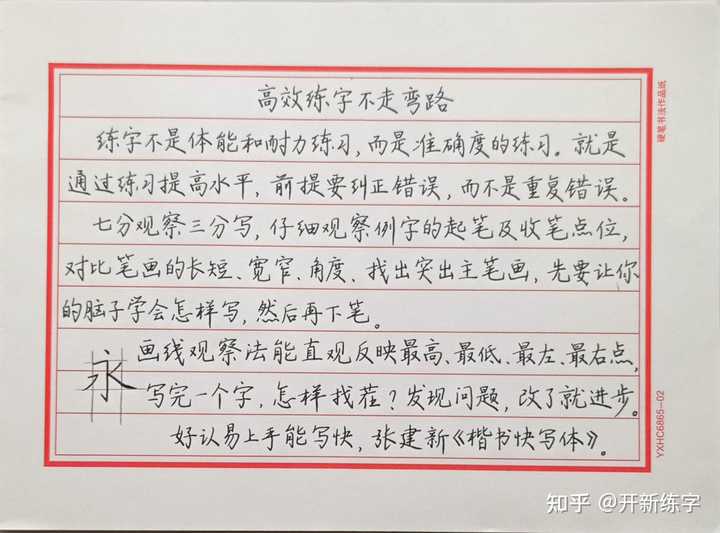 高效练字不走弯路
练字不是体能和耐力练习,而是准确度的练习。就是
通过练习提高水平,前提要纠正错误,而不是重复错误。
七分观察三分写,仔细观察例字的起笔及收笔点位,
对比笔画的长短、宽窄、角度、找出突出主笔画,先要让你
的脑子学会怎样写,然后再下笔。
永
画线观察法能直观反映最高、最低、最左、最右点,
写完一个字,怎样找茬?发现问题,改了就进步。
好认易上手能写快,张建新《楷书快写体》。
硬笔书法作品纸
YXHC6865—02
知乎 @开新练字